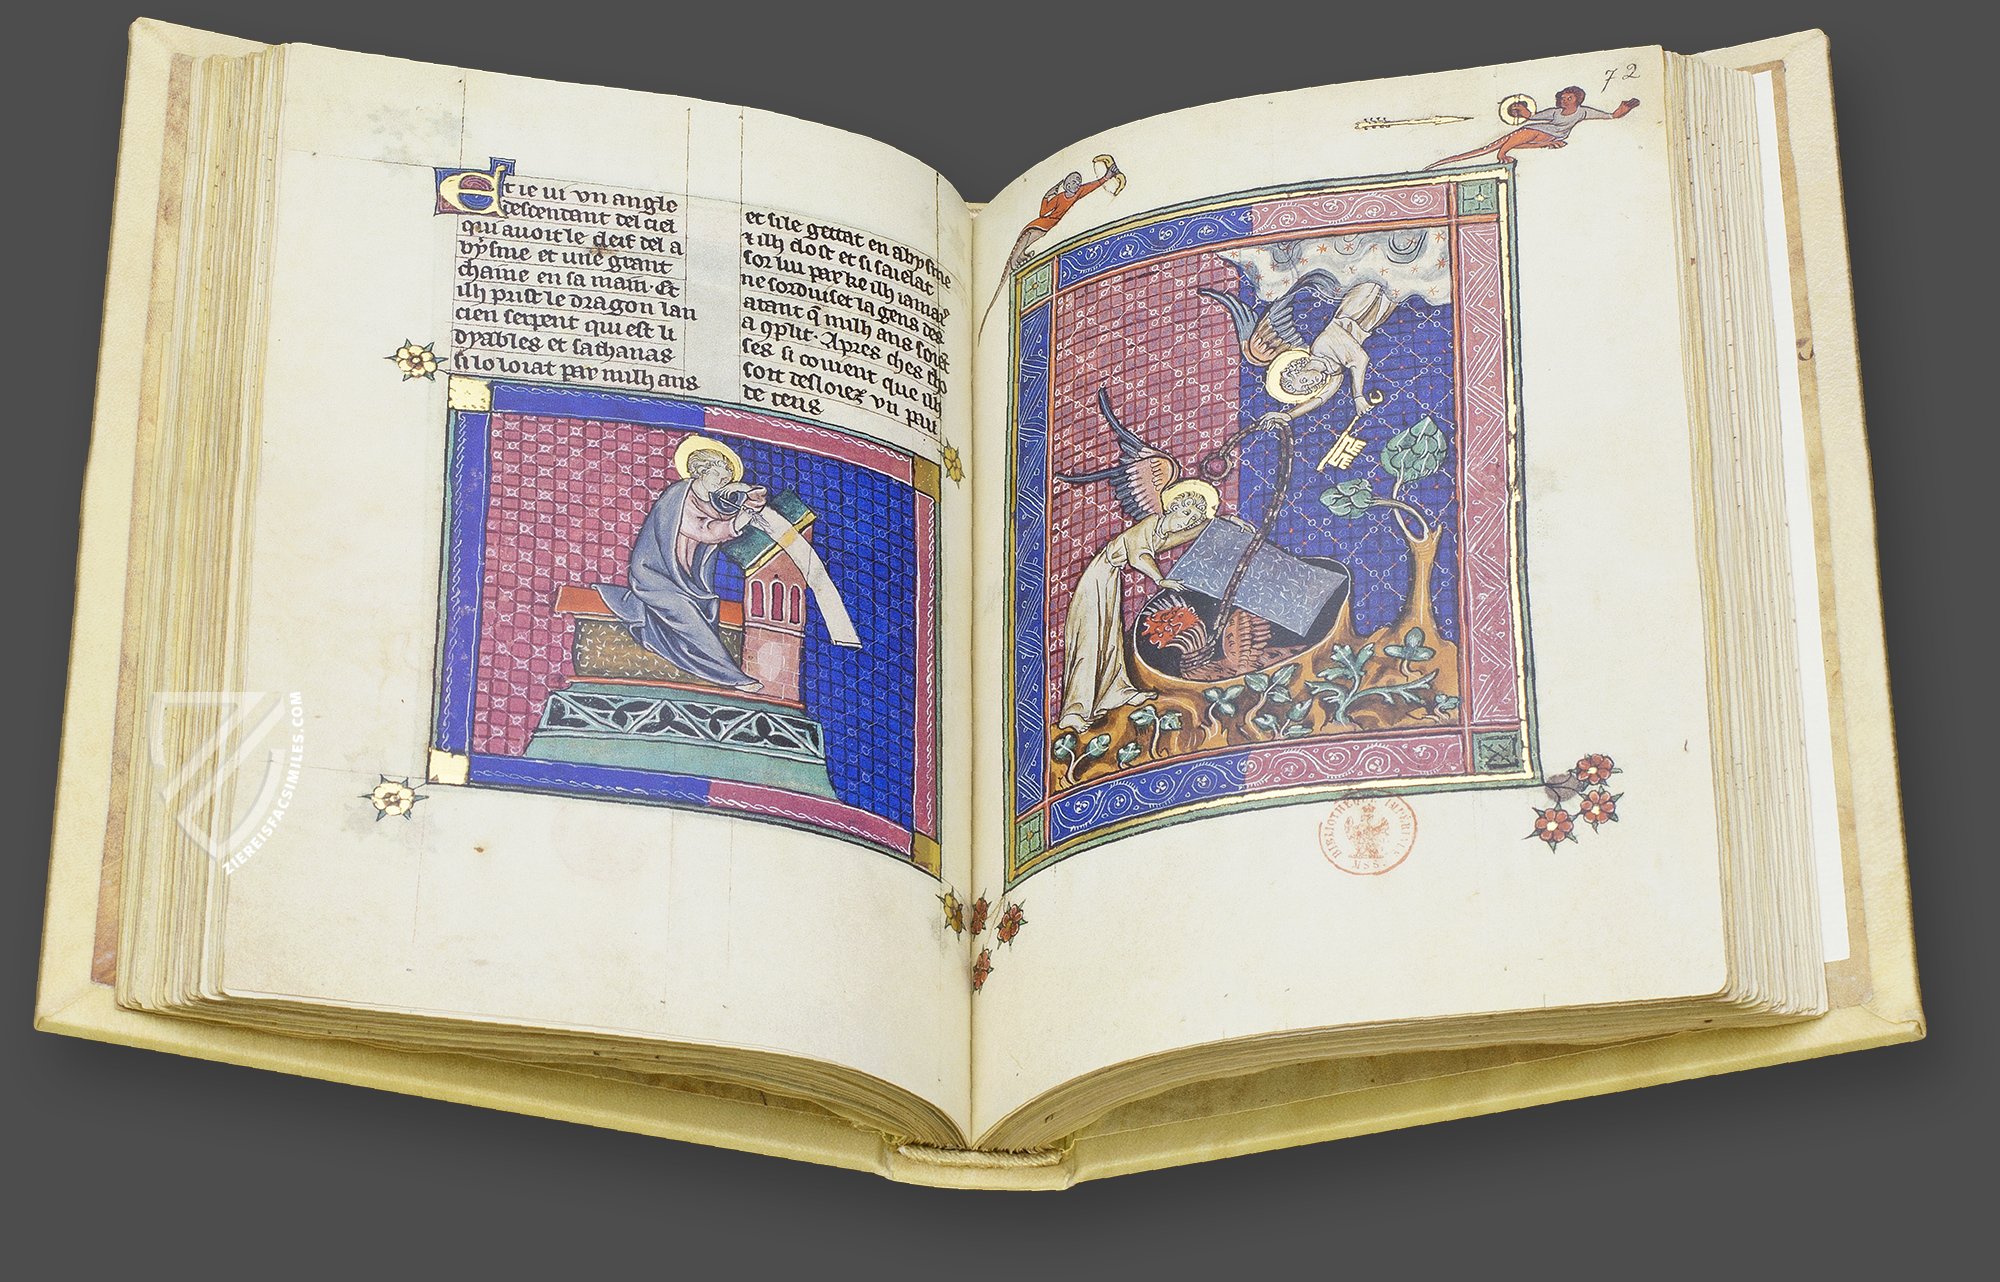 Et ie ui vn angle
descendant del ciel
qui auoit le cleif del a
bysme et une grant
chaine en sa main. Et
ilh prist le dragon lan
cien serpent qui est li
dyables et sathanas
si lo loiat par milh ans
et si le gettat en abysme
ꝛ ilh clost et si saielat
sor lui par ke ilh iamais
ne sorduiset la gens des
atant q̄ milh ans soiẽt
a 9plit. Apres ches cho
ses si couient que ilh
soit desloiez vn pau
de tens
72
BIBLIOTHEQUE IMPERIALE
MSS.
ZIEREISFACSIMILES.COM